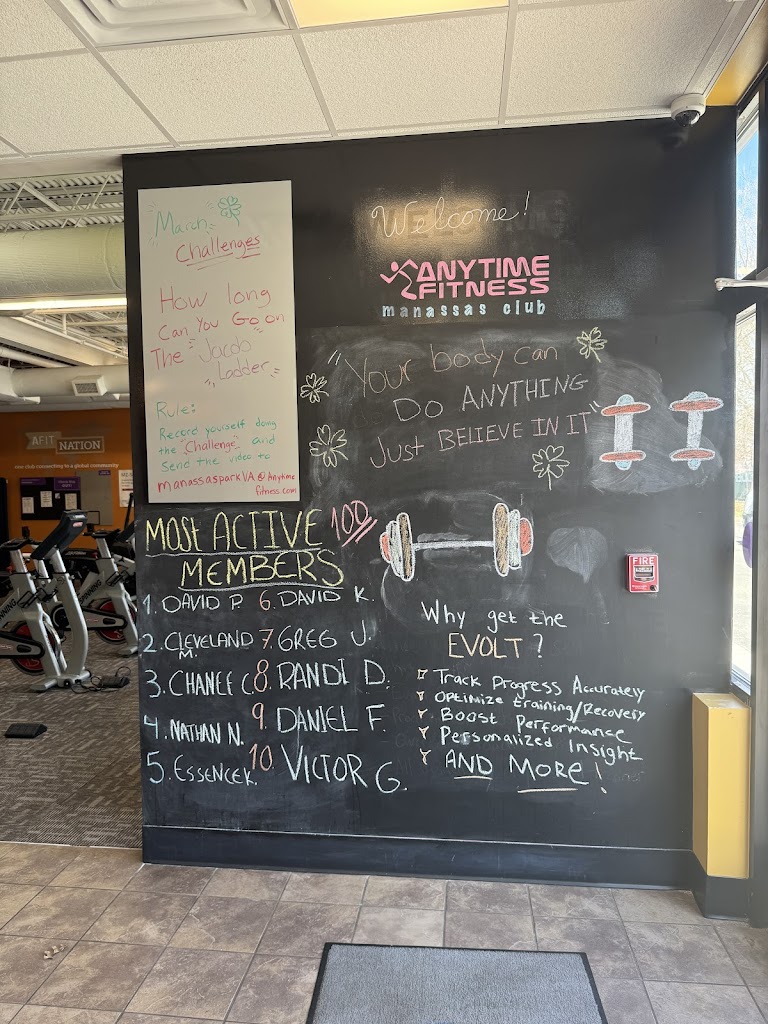 March
Challenges
How long
Can You Go on
The "Jacob
Ladder"
Rule:
Record yourself doing
the "Challenge" and
Send the video to
manassasparkVA@Anytime
fitness.com
Welcome!
ANYTIME
FITNESS
manassas club
"Your body can
Do ANYTHING
Just BELIEVE IN IT"
MOST ACTIVE 100
MEMBERS
1. DAVID P. 6. DAVID K.
2. CLEVELAND M. 7. GREG J.
3. CHANEE C. 8. RANDI D.
4. NATHAN N. 9. DANIEL F.
5. ESSENCE K. 10. VICTOR G.
Why get the
EVOLT?
Track Progress Accurately
Optimize training/Recovery
Boost Performance
Personalized Insight
AND MORE!
FIRE
AFIT
NATION
one club connecting to a global community